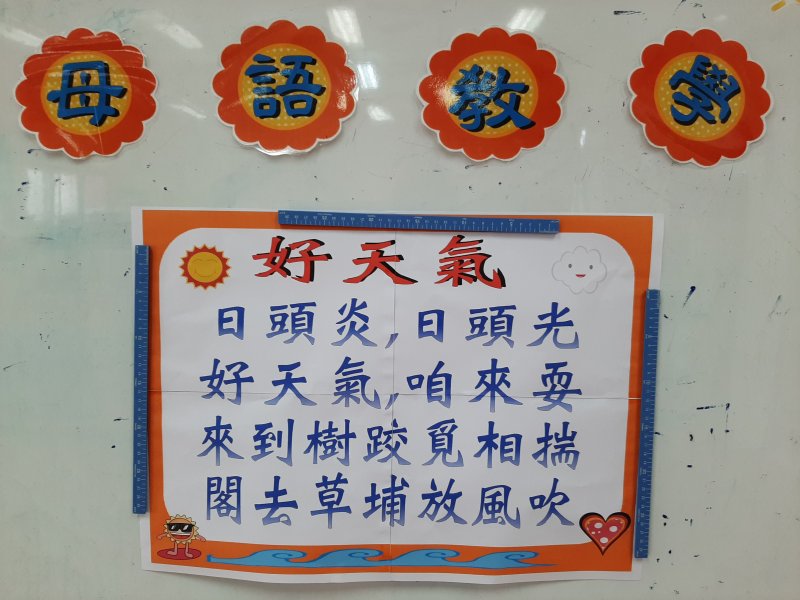 母語教學
好天氣
日頭炎,日頭光
好天氣,咱來耍
來到樹跤覓相揣
閣去草埔放風吹